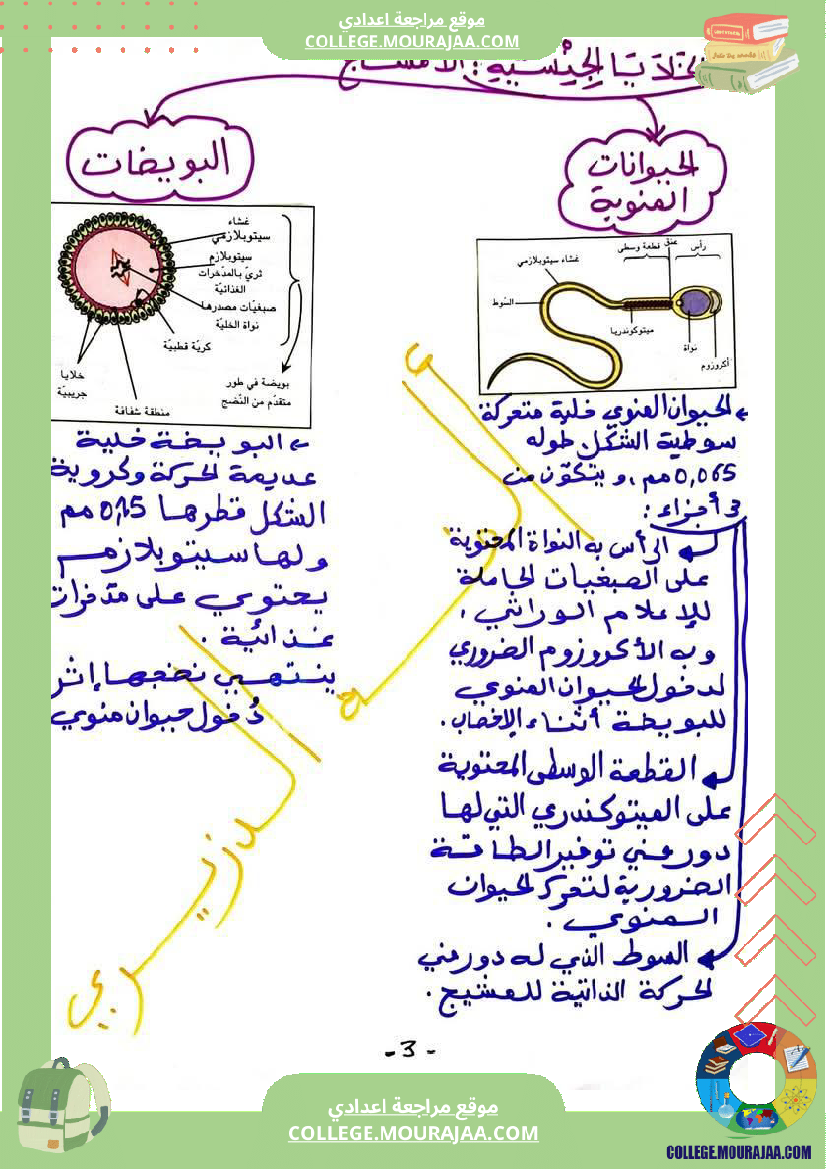 موقع مراجعة اعدادي
COLLEGE.MOURAJAA.COM
الخلايا الجنسية : الأمشاج
الحيوانات
المنوية
رأس
عنق
قطعة وسطى
غشاء سيتوبلازمي
السّوط
ميتوكوندريا
نواة
أكروزوم
←الحيوان المنوي خلية متحركة
سوطية الشكل طوله
0,065 مم ، و يتكوّن من
3 أجزاء :
الرأس به النواة المحتوية
على الصبغيات الحاملة
للإعلام الوراثي ،
وبه الأكروزوم الضروري
لدخول الحيوان المنوي
للبويضة أثناء الإخصاب .
القطعة الوسطى المحتوية
على الميتوكندري التي لها
دور في توفير الطاقة
الضرورية لتحرك الحيوان
المنوي .
السوط الذي له دور في
الحركة الذاتية للمشيج .
البويضات
غشاء
سيتوبلازمي
سيتوبلازم
ثريّ بالمدّخرات
الغذائيّة
صبغيّات مصدرها
نواة الخليّة
كريّة قطبيّة
خلايا
جريبيّة
منطقة شفافة
بويضة في طور
متقدّم من النّضج
← البويضة خلية
عديمة الحركة وكروية
الشكل قطرها 0,15 مم
ولها سيتوبلازم
يحتوي على مدّخرات
غذائية .
ينتهي نضجها إثر
دُخول حيوان منوي
-3-
موقع مراجعة اعدادي
COLLEGE.MOURAJAA.COM
COLLEGE.MOURAJAA.COM